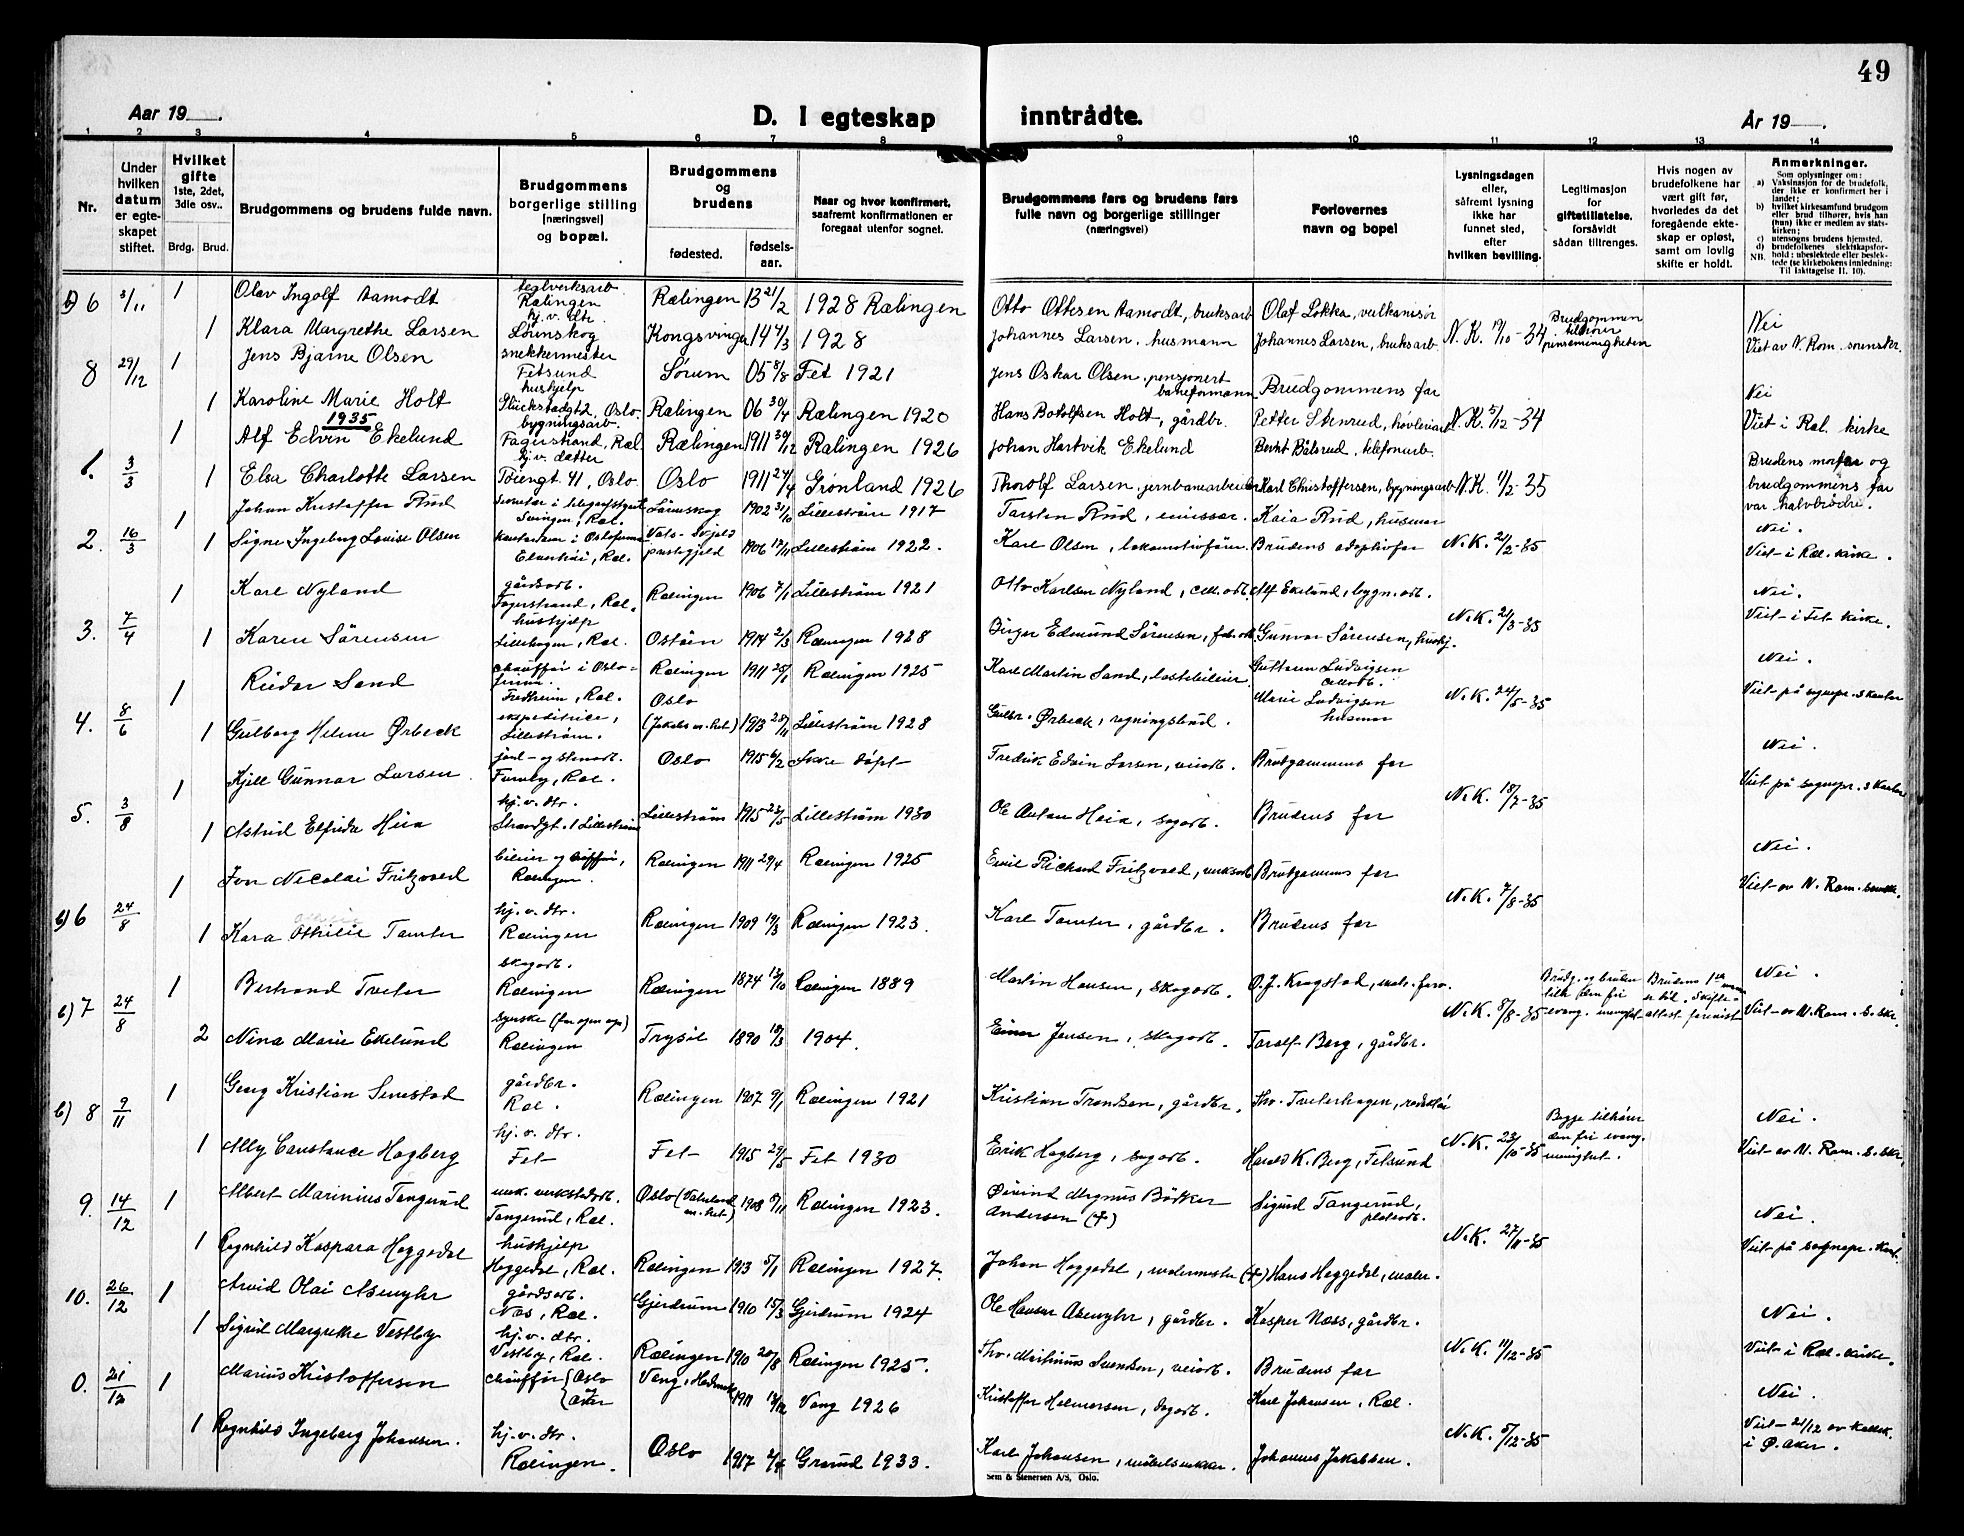 49
Aar 19 .
D. I egteskap
inntrådte.
År 19 .
1 2 3 4 5 6 7 8
9 10 11 12 13 14
Nr.
Under hvilken datum er egteskapet stiftet.
Hvilket gifte 1ste, 2det, 3die osv..
Brdg. Brud.
Brudgommens og brudens fulde navn.
Brudgommens borgerlige stilling (næringsvei) og bopæl.
Brudgommens og brudens
fødested. fødselsaar.
Naar og hvor konfirmert, saafremt konfirmationen er foregaat utenfor sognet.
Brudgommens fars og brudens fars fulle navn og borgerlige stillinger (næringsvei)
Forlovernes navn og bopel
Lysningsdagen eller, såfremt lysning ikke har funnet sted, efter hvilken bevilling.
Legitimasjon for giftetillatelse, forsåvidt sådan tiltrenges.
Hvis nogen av brudefolkene har vært gift før, hvorledes da det foregående ekteskap er opløst, samt om lovlig skifte er holdt.
Anmerkninger.
Som oplysninger om:
a) Vaksinasjon for de brudefolk, der ikke er konfirmert her i landet;
b) hvilket kirkesamfund brudgom eller brud tilhører, hvis han (hun) ikke er medlem av statskirken;
c) utensogns brudens hjemsted.
d) brudefolkenes slektskapsforhold: ubeslektede eller beslektede (se kirkebokens innledning:
NB. Til Iakttagelse II. 10).
b) 6 3/11 1 Olav Ingolf Aamodt teglverksarb. Rælingen Rælingen 13 21/2 1928 Rælingen Otto Ottesen Aamodt, bruksarb Olaf Løkka, vulkanisør
1 Klara Margrethe Larsen hj. v. dtr. Lørenskog Kongsvinger 14 4/3 1928 Johannes Larsen, husmann Johannes Larsen, bruksarb. N.K. 19/10-34 Brudgommen tilhører pinsemenigheten Nei Viet av N. Rom. sorenskr.
8 29/12 1 Jens Bjarne Olsen snekkermester Fetsund Sørum 05 5/8 Fet 1921 Jens Oskar Olsen, pensjonert baneformann Brudgommens far Nei
1 Karoline Marie Holt hushjelp Glückstadgt 2, Oslo. Rælingen 06 30/4 Rælingen 1920 Hans Botolfsen Holt, gårdbr. Petter Stenrud, høvleriarb. N.K. 5/12-34 Viet i Ræl. kirke
1935
1 Alf Edvin Ekelund bygningsarb. Fagerstrand, Ræl. Rælingen 1911 30/12 Rælingen 1926 Johan Hartvik Ekelund Bernt Bålsrud, telefonarb.
1. 3/3 1 Elsa Charlotte Larsen hj. v. datter Tøiengt 41, Oslo. Oslo 1911 24/4 Grønland 1926 Thorolf Larsen, jernbanearbeider Karl Christoffersen, bygningsarb N.K. 11/2-35 Brudens morfar og brudgommens far var halvbrødre.
1 Johan Kristoffer Rud Lørenskog 1902 31/10 Lillestrøm 1917 Torsten Rud, emissær. Kaia Rud, husmor Nei.
2. 16/3 1 Signe Ingeborg Louise Olsen kontordame i Oslofirma Elvestrøi, Ræl. 1906 17/11 Lillestrøm 1922. Karl Olsen, lokomotivfører. Brudens adoptivfar N.K. 21/2-35 Viet i Ræl. kirke.
1 Karl Nyland gårdsarb. Fagerstrand, Ræl. Rælingen 1906 7/1 Lillestrøm 1921 Otto Karlsen Nyland, cell. arb. Alf Ekelund, bygn. arb. Nei.
3. 7/4 1 Karen Sørensen hushjelp Lillehagen, Ræl. 1914 2/3 Rælingen 1928 Birger Edmund Sørensen, fab. arb Gunvor Sørensen, hushj. N.K. 21/3-35 Viet i Fet kirke.
1 Reidar Sand chauffør i Oslofirma. Fredheim, Ræl. Rælingen 1911 25/1 Rælingen 1925 Karl Martin Sand, lastebileier. Guttorm Ludvigsen cellarb. Nei.
4. 8/6 1 Gulborg Helene Ørbeck ekspeditrice, Lillestrøm. Oslo (Jakobs m.het) 1913 28/11 Lillestrøm 1928 Gulbr. Ørbeck, regningsbud. Marie Ludvigsen husmor N.K. 24/5-35 Viet på sognepr.s kontor
1 Kjell Gunnar Larsen jord- og stenarb. Furuby, Ræl. Oslo 1915 6/2 Ikke døpt Fredrik Edvin Larsen, veiarb. Brudgommens far Nei.
5. 3/8 1 Astrid Elfrida Heia hj. v. dtr. Strandgt. 1 Lillestrøm Lillestrøm 1915 23/5 Lillestrøm 1930 Ole Anton Heia, sagarb. Brudens far N.K. 18/7-35 Viet på sognepr.s kontor
1 Jon Nicolai Fritzvold bileier og sjåffør, Rælingen. Rælingen 1911 29/4 Rælingen 1925 Emil Richard Fritzvold, verksarb Brudgommens far Nei.
b) 6 24/8 1 Kara Othilie Tomter hj. v. dtr. Rælingen Rælingen 1909 19/3 Rælingen 1923. Karl Tomter, gårdbr. Brudens far N.K. 7/8-35 Viet av N. Rom. sorskr.
1 Bertrand Tveter skogarb. Rælingen Rælingen 1874 12/10 Rælingen 1889 Martin Hansen, skogarb. O.J. Krogstad, male.forr. Nei.
b) 7 24/8 2 Nina Marie Ekelund Rælingen Trysil 1890 18/3 1904. Einar Jensen, skogarb. Toralf Berg, gårdbr. N.K. 8/8-35 Brudg. og bruden tilh. den fri evang. menighet Brudens 1ste mann er død. Skifteattest forevist Viet av N. Rom. s. skr.
1 Georg Kristian Senestad gårdbr. Ræl. Rælingen 1907 9/1 Rælingen 1921 Kristian Trondsen, gårdbr. Thv. Tveterhagen, redaktør Nei.
b) 8 9/11 1 Ally Constance Hagberg hj. v. dtr. Fet Fet 1915 29/5 Fet 1930 Erik Hagberg, sagarb. Harald K. Berg, Fetsund N.K. 23/10-35 Begge tilhører den fri evang. menighet. Viet av N. Rom. s. skr.
9. 14/12 1 Albert Marinius Tangerud mek. verkstedarb. Tangerud, Ræl. Oslo (Vaterland m.het) 1908 8/11 Rælingen 1923. Øivind Magnus Bødker Andersen (†) Sigurd Tangerud, platearb. Nei.
1 Ragnhild Kaspara Heggedal hushjelp Heggedal, Ræl. Rælingen 1913 5/1 Rælingen 1927. Johan Heggedal, malermester (†) Hans Heggedal, maler. N.K. 27/11-35 Viet på sognepr. kont.
10. 26/12 1 Arvid Olai Asmyhr gårdsarb. Nes, Ræl. Gjerdrum 1910 15/3 Gjerdrum 1924 Ole Hansen Asmyhr, gårdbr. Kasper Næss, gårdbr. Nei.
1 Sigrid Margrethe Vestby hj. v. dtr. Vestby, Ræl. Rælingen 1910 20/8 Rælingen 1925. Thv. Martinius Svendsen, veiarb. Brudens far N.K. 11/12-35 Viet i Ræl. kirke.
0. 21/12 1 Marius Kristoffersen chauffør {Oslo {Aker Vang, Hedmark 1911 12/12 Vang 1926 Kristoffer Halvorsen, sagarb. Karl Johansen, Ræl. Nei.
1 Ragnhild Ingeborg Johansen. hj. v. dtr. Rælingen. Oslo 1917 Grorud 1933. Karl Johansen, møbelsnekker. Johannes Jakobsen. N.K. 5/12-35 Viet 21/12 av kallsk. i Ø. Aker.
Sem & Stenersen A/S, Oslo.